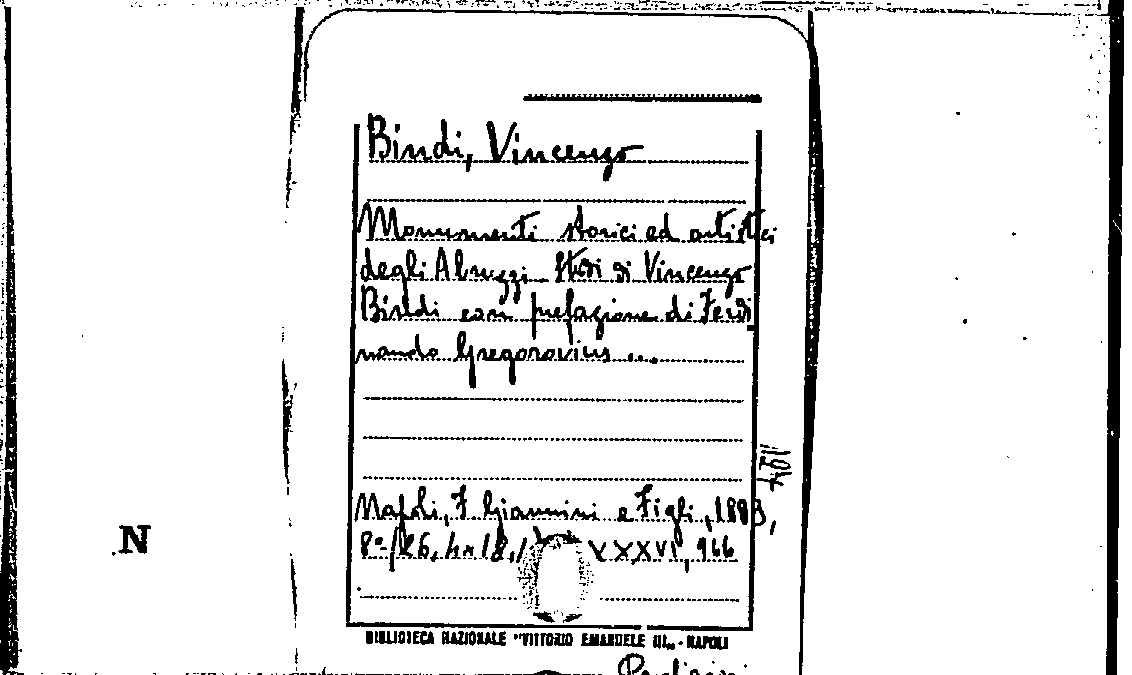 Bindi, Vincenzo
Monumenti storici ed artistici
degli Abruzzi. Studi di Vincenzo
Bindi con prefazione di Ferdi
nando Gregorovius ...
Napoli, F. Giannini e Figli, 1883,
8º XXXVI, 966
N
BIBLIOTECA NAZIONALE "VITTORIO EMANUELE III„ - NAPOLI